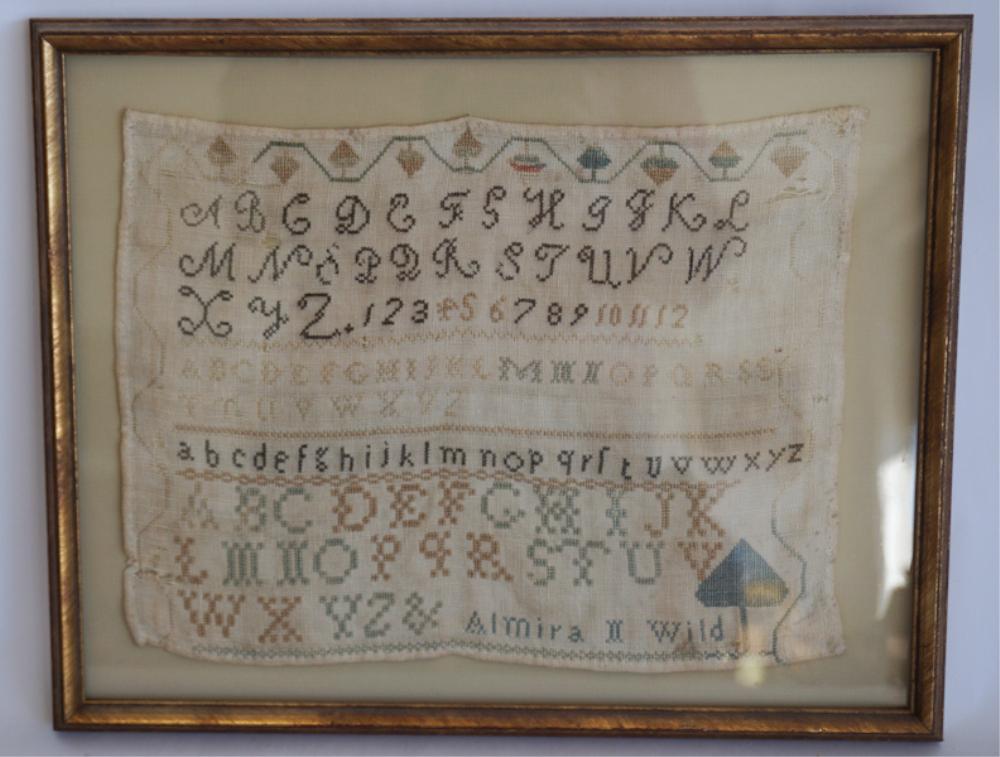 A B C D E F G H I J K L
M N O P Q R S T U V W
X Y Z . 1 2 3 4 5 6 7 8 9 10 11 12
A B C D E F G H I J K L M N N O P Q R S S
T T U V W X Y Z
a b c d e f g h i j k l m n o p q r ſ t u v w x y z
A B C D E F G H I J K
L M N O P Q R S T U V
W X Y Z & Almira N Wild